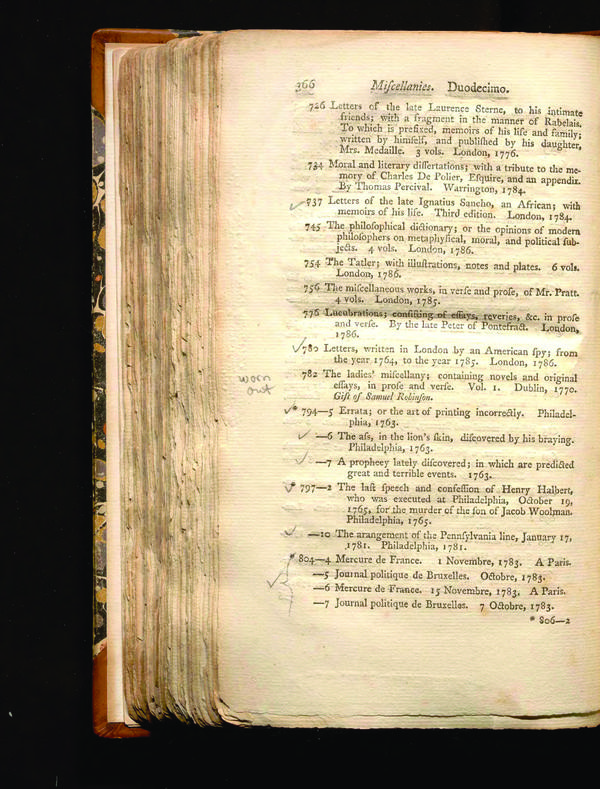 366 Miſcellanies. Duodecimo.
726 Letters of the late Laurence Sterne, to his intimate
friends; with a fragment in the manner of Rabelais.
To which is prefixed, memoirs of his life and family;
written by himſelf, and publiſhed by his daughter,
Mrs. Medaille. 3 vols. London, 1776.
734 Moral and literary diſſertations; with a tribute to the me-
mory of Charles De Polier, Eſquire, and an appendix.
By Thomas Percival. Warrington, 1784.
737 Letters of the late Ignatius Sancho, an African; with
memoirs of his life. Third edition. London, 1784.
745 The philoſophical dictionary; or the opinions of modern
philoſophers on metaphyſical, moral, and political ſub-
jects. 4 vols. London, 1786.
754 The Tatler; with illuſtrations, notes and plates. 6 vols.
London, 1786.
756 The miſcellaneous works, in verſe and proſe, of Mr. Pratt.
4 vols. London, 1785.
776 Lucubrations; conſiſting of eſſays, reveries, &c. in proſe
and verſe. By the late Peter of Pontefract. London,
1786.
780 Letters, written in London by an American ſpy; from
the year 1764, to the year 1785. London, 1786.
782 The ladies' miſcellany; containing novels and original
eſſays, in proſe and verſe. Vol. 1. Dublin, 1770.
Gift of Samuel Robinſon.
worn
out
* 794—5 Errata; or the art of printing incorrectly. Philadel-
phia, 1763.
—6 The aſs, in the lion's ſkin, diſcovered by his braying.
Philadelphia, 1763.
—7 A prophecy lately diſcovered; in which are predicted
great and terrible events. 1763.
* 797—2 The laſt ſpeech and confeſſion of Henry Halbert,
who was executed at Philadelphia, October 19,
1765, for the murder of the ſon of Jacob Woolman.
Philadelphia, 1765.
—10 The arangement of the Pennſylvania line, January 17,
1781. Philadelphia, 1781.
* 804—4 Mercure de France. 1 Novembre, 1783. A Paris.
—5 Journal politique de Bruxelles. Octobre, 1783.
—6 Mercure de France. 15 Novembre, 1783. A Paris.
—7 Journal politique de Bruxelles. 7 Octobre, 1783.
* 806—2